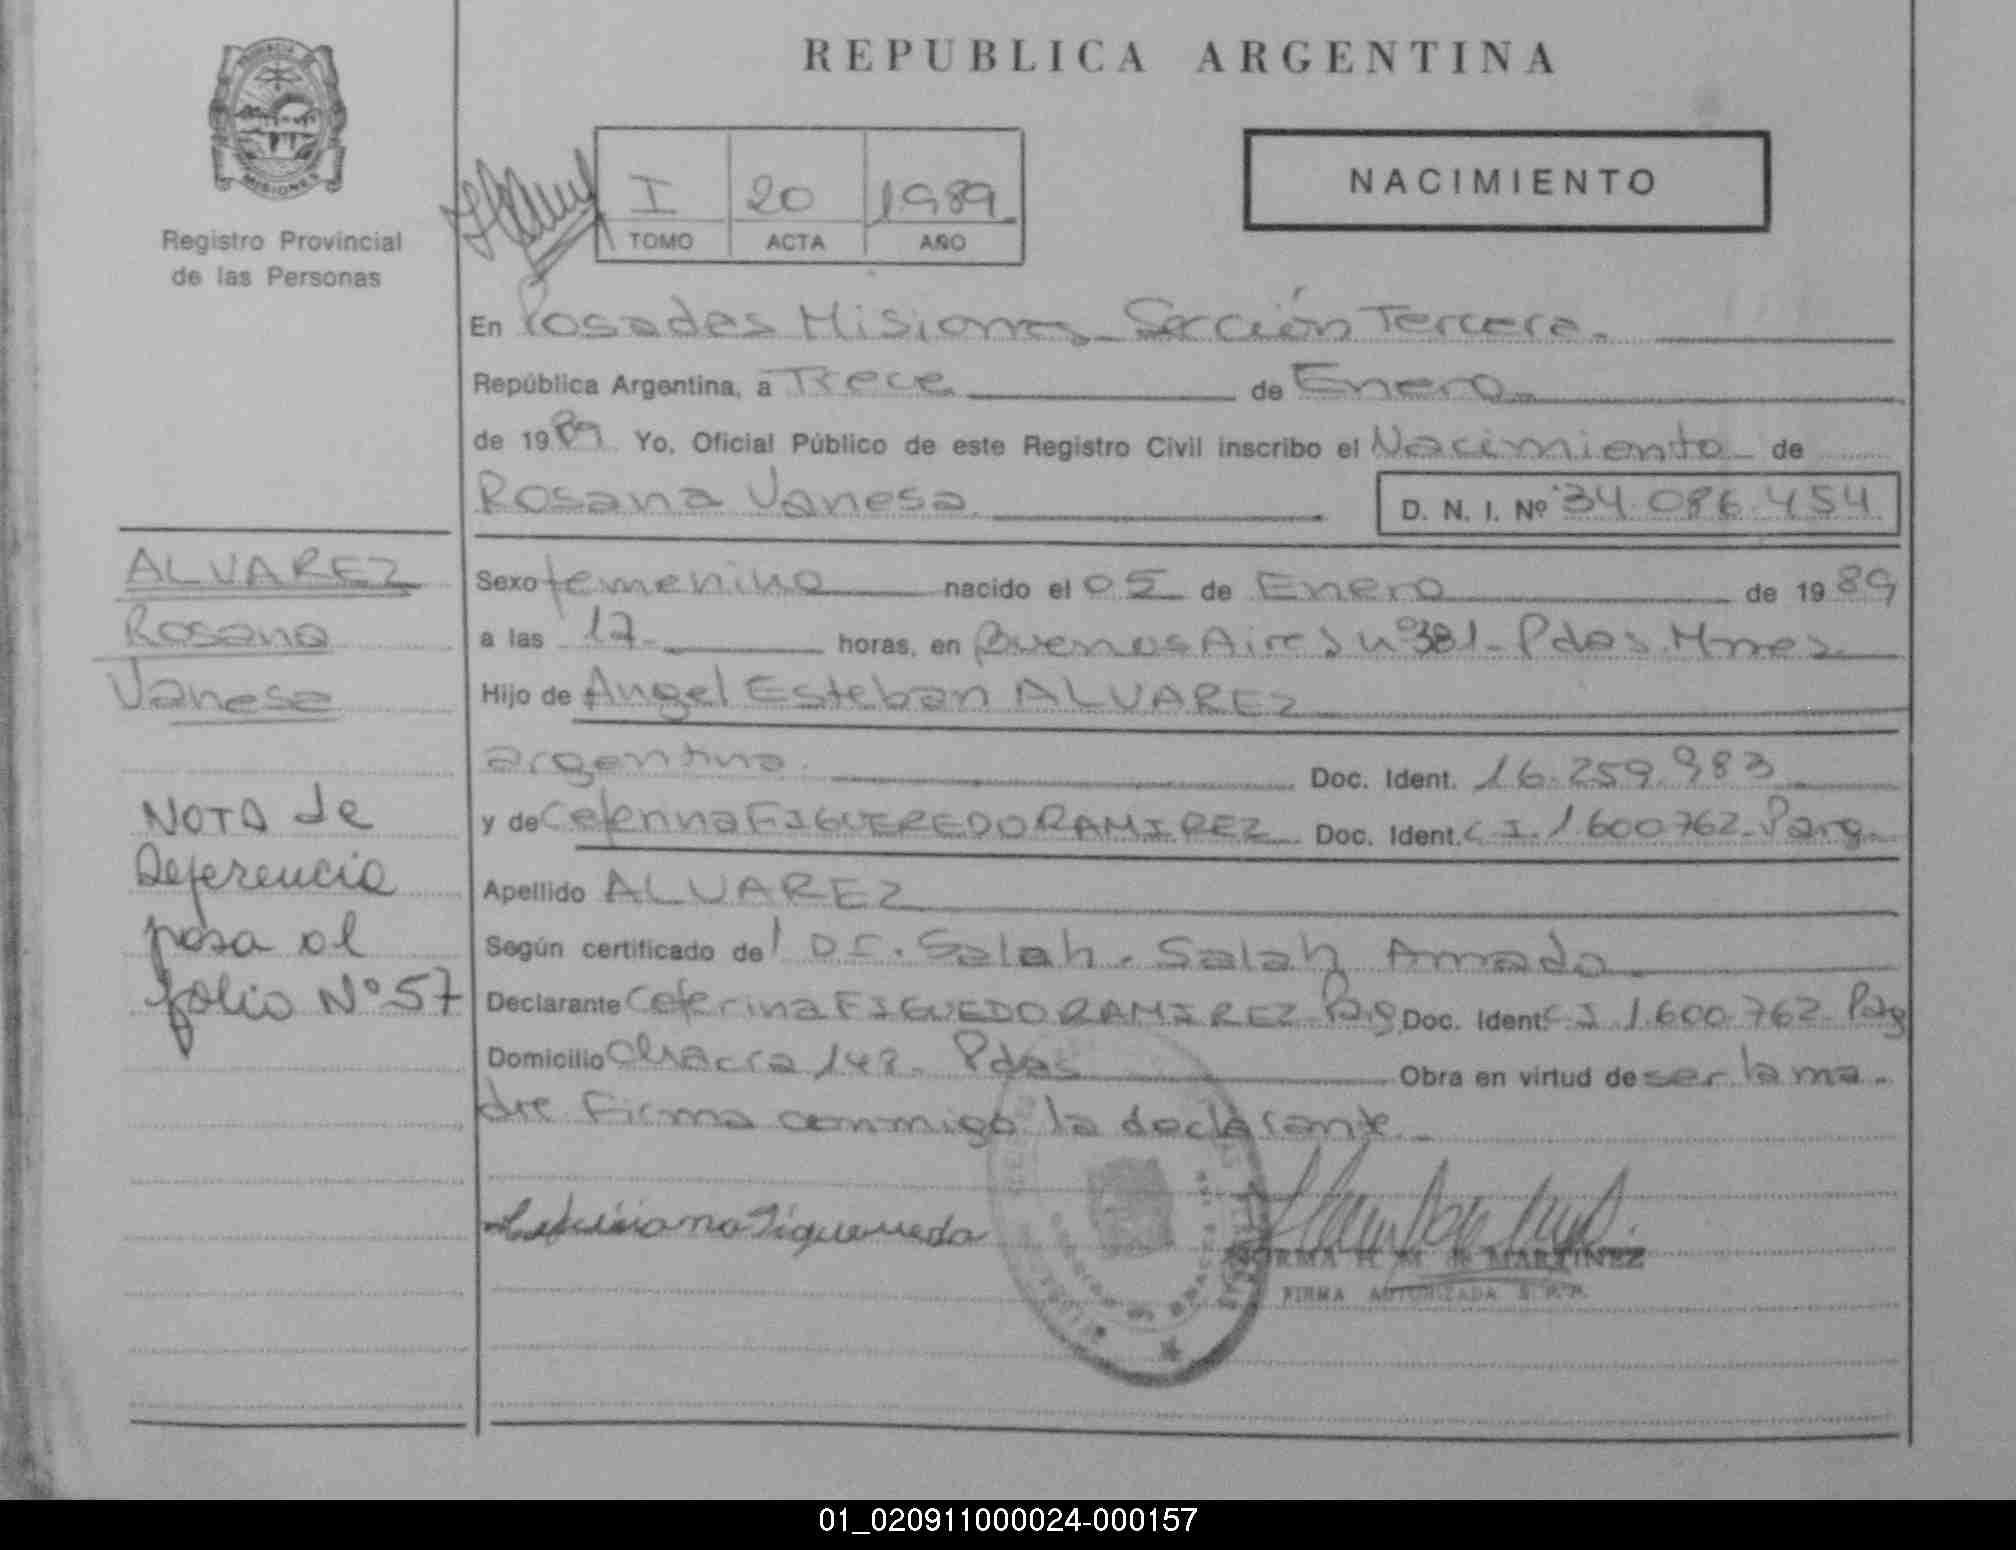 REPUBLICA ARGENTINA
MISIONES
Registro Provincial
de las Personas
I 20 1989
TOMO ACTA AÑO
NACIMIENTO
En Posadas Misiones - Sección Tercera.
República Argentina, a Trece de Enero
de 1989 Yo, Oficial Público de este Registro Civil inscribo el Nacimiento de
Rosana Vanesa D. N. I. Nº 34.086.454
ALVAREZ
Rosana
Vanesa
Sexo femenino nacido el 05 de Enero de 1989
a las 17 horas, en Buenos Aires nº381 - Pdas. Mnes
Hijo de Angel Esteban ALVAREZ
argentino Doc. Ident. 16.259.983
y de Ceferina FIGUEREDO RAMIREZ Doc. Ident. C I. 1.600762- Parg.
Apellido ALVAREZ
Según certificado del Dr. Salah. Salah Amado
Declarante Ceferina FIGUEDO RAMIREZ Parg Doc. Ident. C I 1.600.762- Parg
Domicilio Chacra 148 - Pdas Obra en virtud de ser la ma-
dre Firma conmigo la declarante.-
NOTA de
Referencia
pasa al
folio Nº 57
NORMA H. M. de MARTINEZ
FIRMA AUTORIZADA R. P. P.
01_020911000024-000157